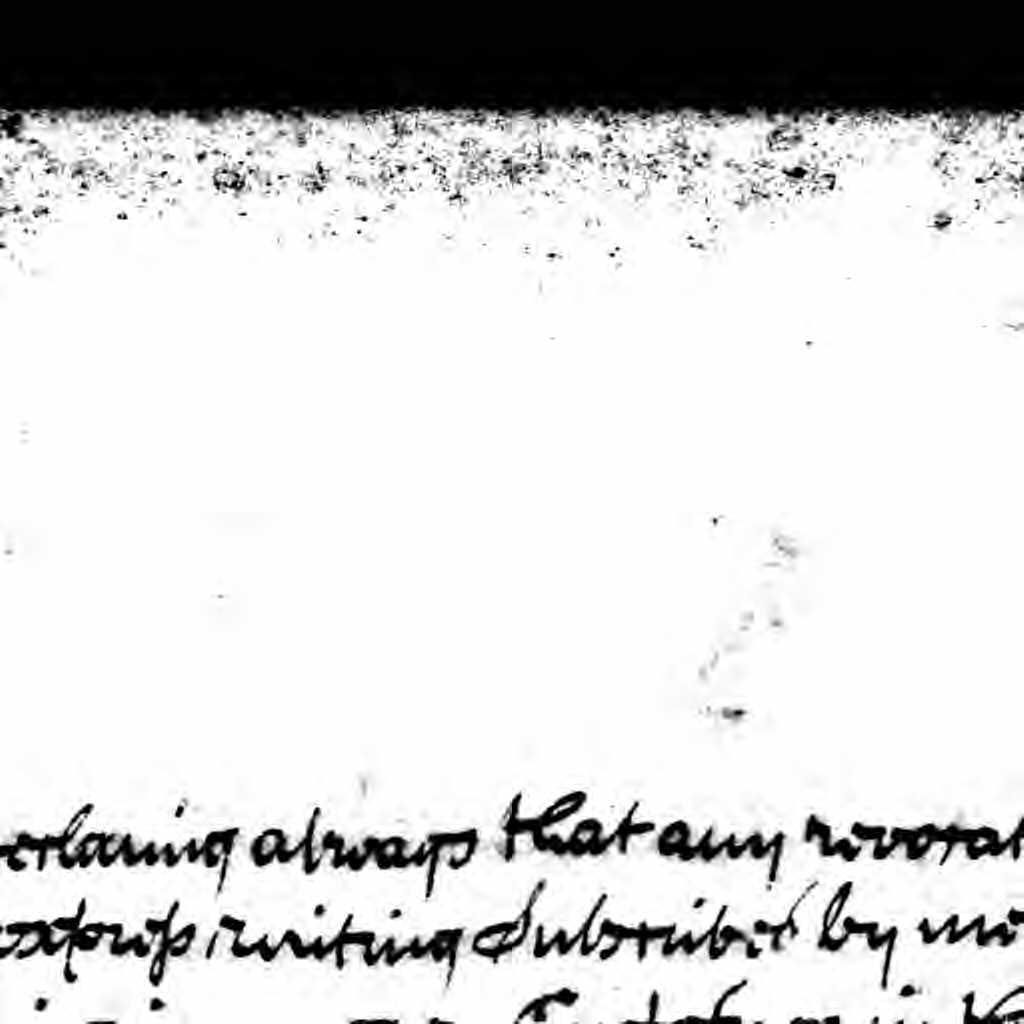 erlaring always that any revocat
express writing Subscribed by me